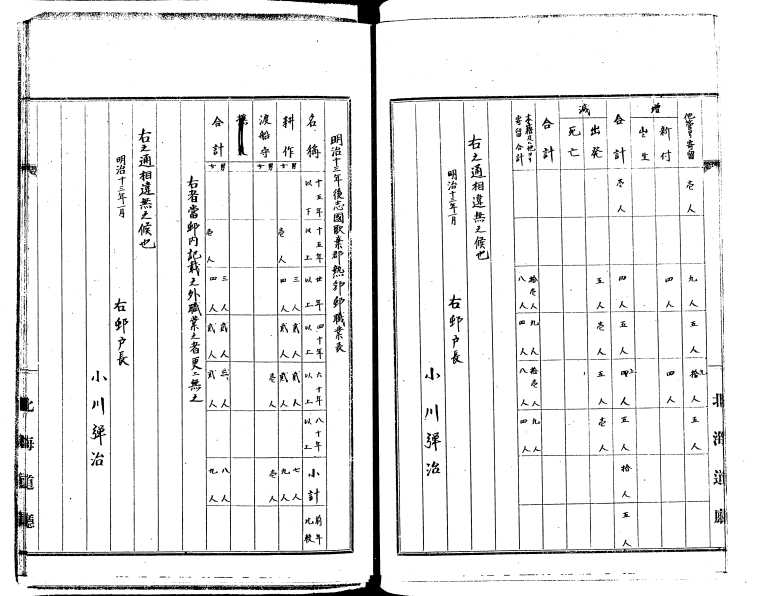 他管ヨリ寄留
壱人
九人
五人
拾九人
五人
増
新付
四人
四人
出生
合計
壱人
四人
五人
四人
五人
拾人
五人
減
出発
五人
壱人
五人
壱人
死亡
合計
本籍及他ヨリ寄留合計
拾壱人
八人
九人
四人
拾壱人
八人
九人
四人
右之通相違無之候也
明治十三年一月
右邨戸長
小川弾治
北海道廳
明治十三年後志國歌棄郡熱郛邨職業表
名稱
十五年以下
十五年以上
廿年以上
四十年以上
六十年以上
八十年以上
小計
前年比較
耕作
男
女
壱人
三人
四人
弐人
弐人
弐人
弐人
七人
九人
渡船守
男
女
壱人
壱人
合計
男
女
壱人
三人
四人
弐人
弐人
三人
弐人
八人
九人
右者當邨内記載之外職業之者更ニ無之
右之通相違無之候也
明治十三年一月
右邨戸長
小川弾治
北海道廳